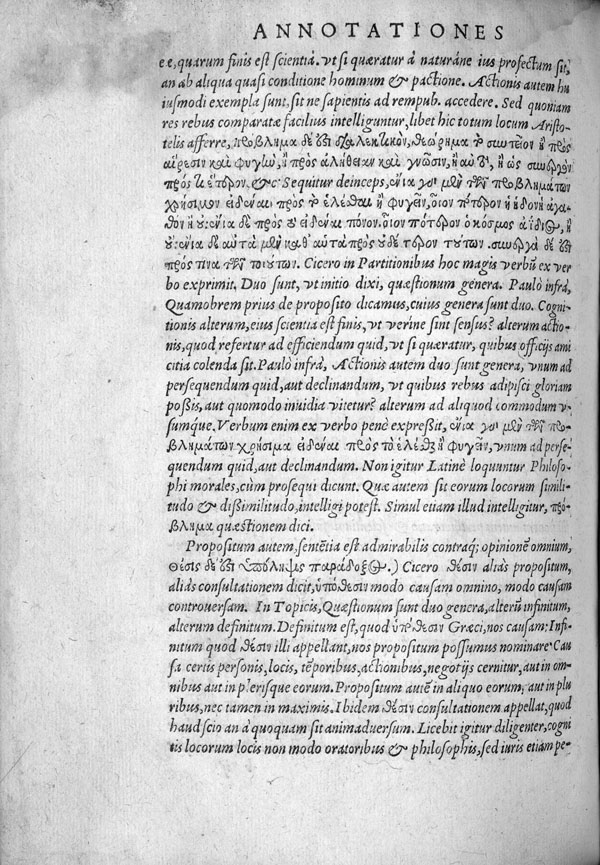 ANNOTATIONES
ee, quarum finis est scientiā. vt si quæratur à naturáne ius profectum sit,
an ab aliqua quasi conditione hominum & pactione. Actionis autem hu
iusmodi exempla sunt, sit ne sapientis ad rempub. accedere. Sed quoniam
res rebus comparatæ facilius intelliguntur, libet hic totum locum Aristo-
telis afferre, πρόβλημα δέ ὅτι διαλεκτικὸν, θεώρημα τὸ συντεῖνον ἢ πρὸς
αἵρεσιν καὶ φυγὼ, ἢ πρὸς ἀλήθειαν καὶ γνῶσιν, ἢ αὐτὸ, ἢ ὡς συνεργὸν
πρός τι ἕτερον. &c. Sequitur deinceps, ἔνια γὸ μὲν τῶν προβλημάτων
χρήσιμον εἰδέναι πρὸς τὸ ἑλέσθαι ἢ φυγεῖν, οἷον πότερον ἡ ἡδονὴ ἀγα-
θὸν ἢ οὔ. ἔνια δὲ πρὸς τὸ εἰδέναι μόνον. οἷον πότερον ὁ κόσμος ἀίδιος, ἢ
οὔ. ἔνια δὲ αὐτὰ μὲν καθ' αὑτὰ πρὸς οὐδέτερον τούτων. συνεργὰ δέ ὅτι
πρός τινα τῶν τοιούτων. Cicero in Partitionibus hoc magis verbū ex ver
bo exprimit. Duo sunt, vt initio dixi, quæstionum genera. Paulò infrà,
Quamobrem prius de proposito dicamus, cuius genera sunt duo. Cogni-
tionis alterum, eius scientia est finis, vt veríne sint sensus? alterum actio-
nis, quod refertur ad efficiendum quid, vt si quæratur, quibus officijs ami
citia colenda sit. Paulò infrà, Actionis autem duo sunt genera, vnum ad
persequendum quid, aut declinandum, vt quibus rebus adipisci gloriam
possis, aut quomodo inuidia vitetur? alterum ad aliquod commodum v-
sumque. Verbum enim ex verbo penè expreßit, ἔνια γὸ μὲν τῶν προ-
βλημάτων χρήσιμα εἰδέναι πρὸς τὸ ἑλέσθ ἢ φυγεῖν, vnum ad perse-
quendum quid, aut declinandum. Non igitur Latinè loquuntur Philoso-
phi morales, cùm prosequi dicunt. Quæ autem sit eorum locorum simili-
tudo & dißimilitudo, intelligi potest. Simul etiam illud intelligitur, πρό-
βλημα quæstionem dici.
Propositum autem, sentētia est admirabilis contraq; opinionē omnium,
Θέσις δέ ὅτι ὑπόληψις παράδοξος.) Cicero θέσιν aliàs propositum,
aliàs consultationem dicit, ὑπόθεσιν modo causam omnino, modo causam
controuersam. In Topicis, Quæstionum sunt duo genera, alterū infinitum,
alterum definitum. Definitum est, quod ὑπόθεσιν Græci, nos causam: Infi-
nitum quod θέσιν illi appellant, nos propositum possumus nominare. Cau
sa certis personis, locis, tēporibus, actionibus, negotijs cernitur, aut in om-
nibus aut in plerisque eorum. Propositum autē in aliquo eorum, aut in plu
ribus, nec tamen in maximis. Ibidem θέσιν consultationem appellat, quod
haud scio an à quoquam sit animaduersum. Licebit igitur diligenter, cogni
tis locorum locis non modo oratoribus & philosophis, sed iuris etiam pe-